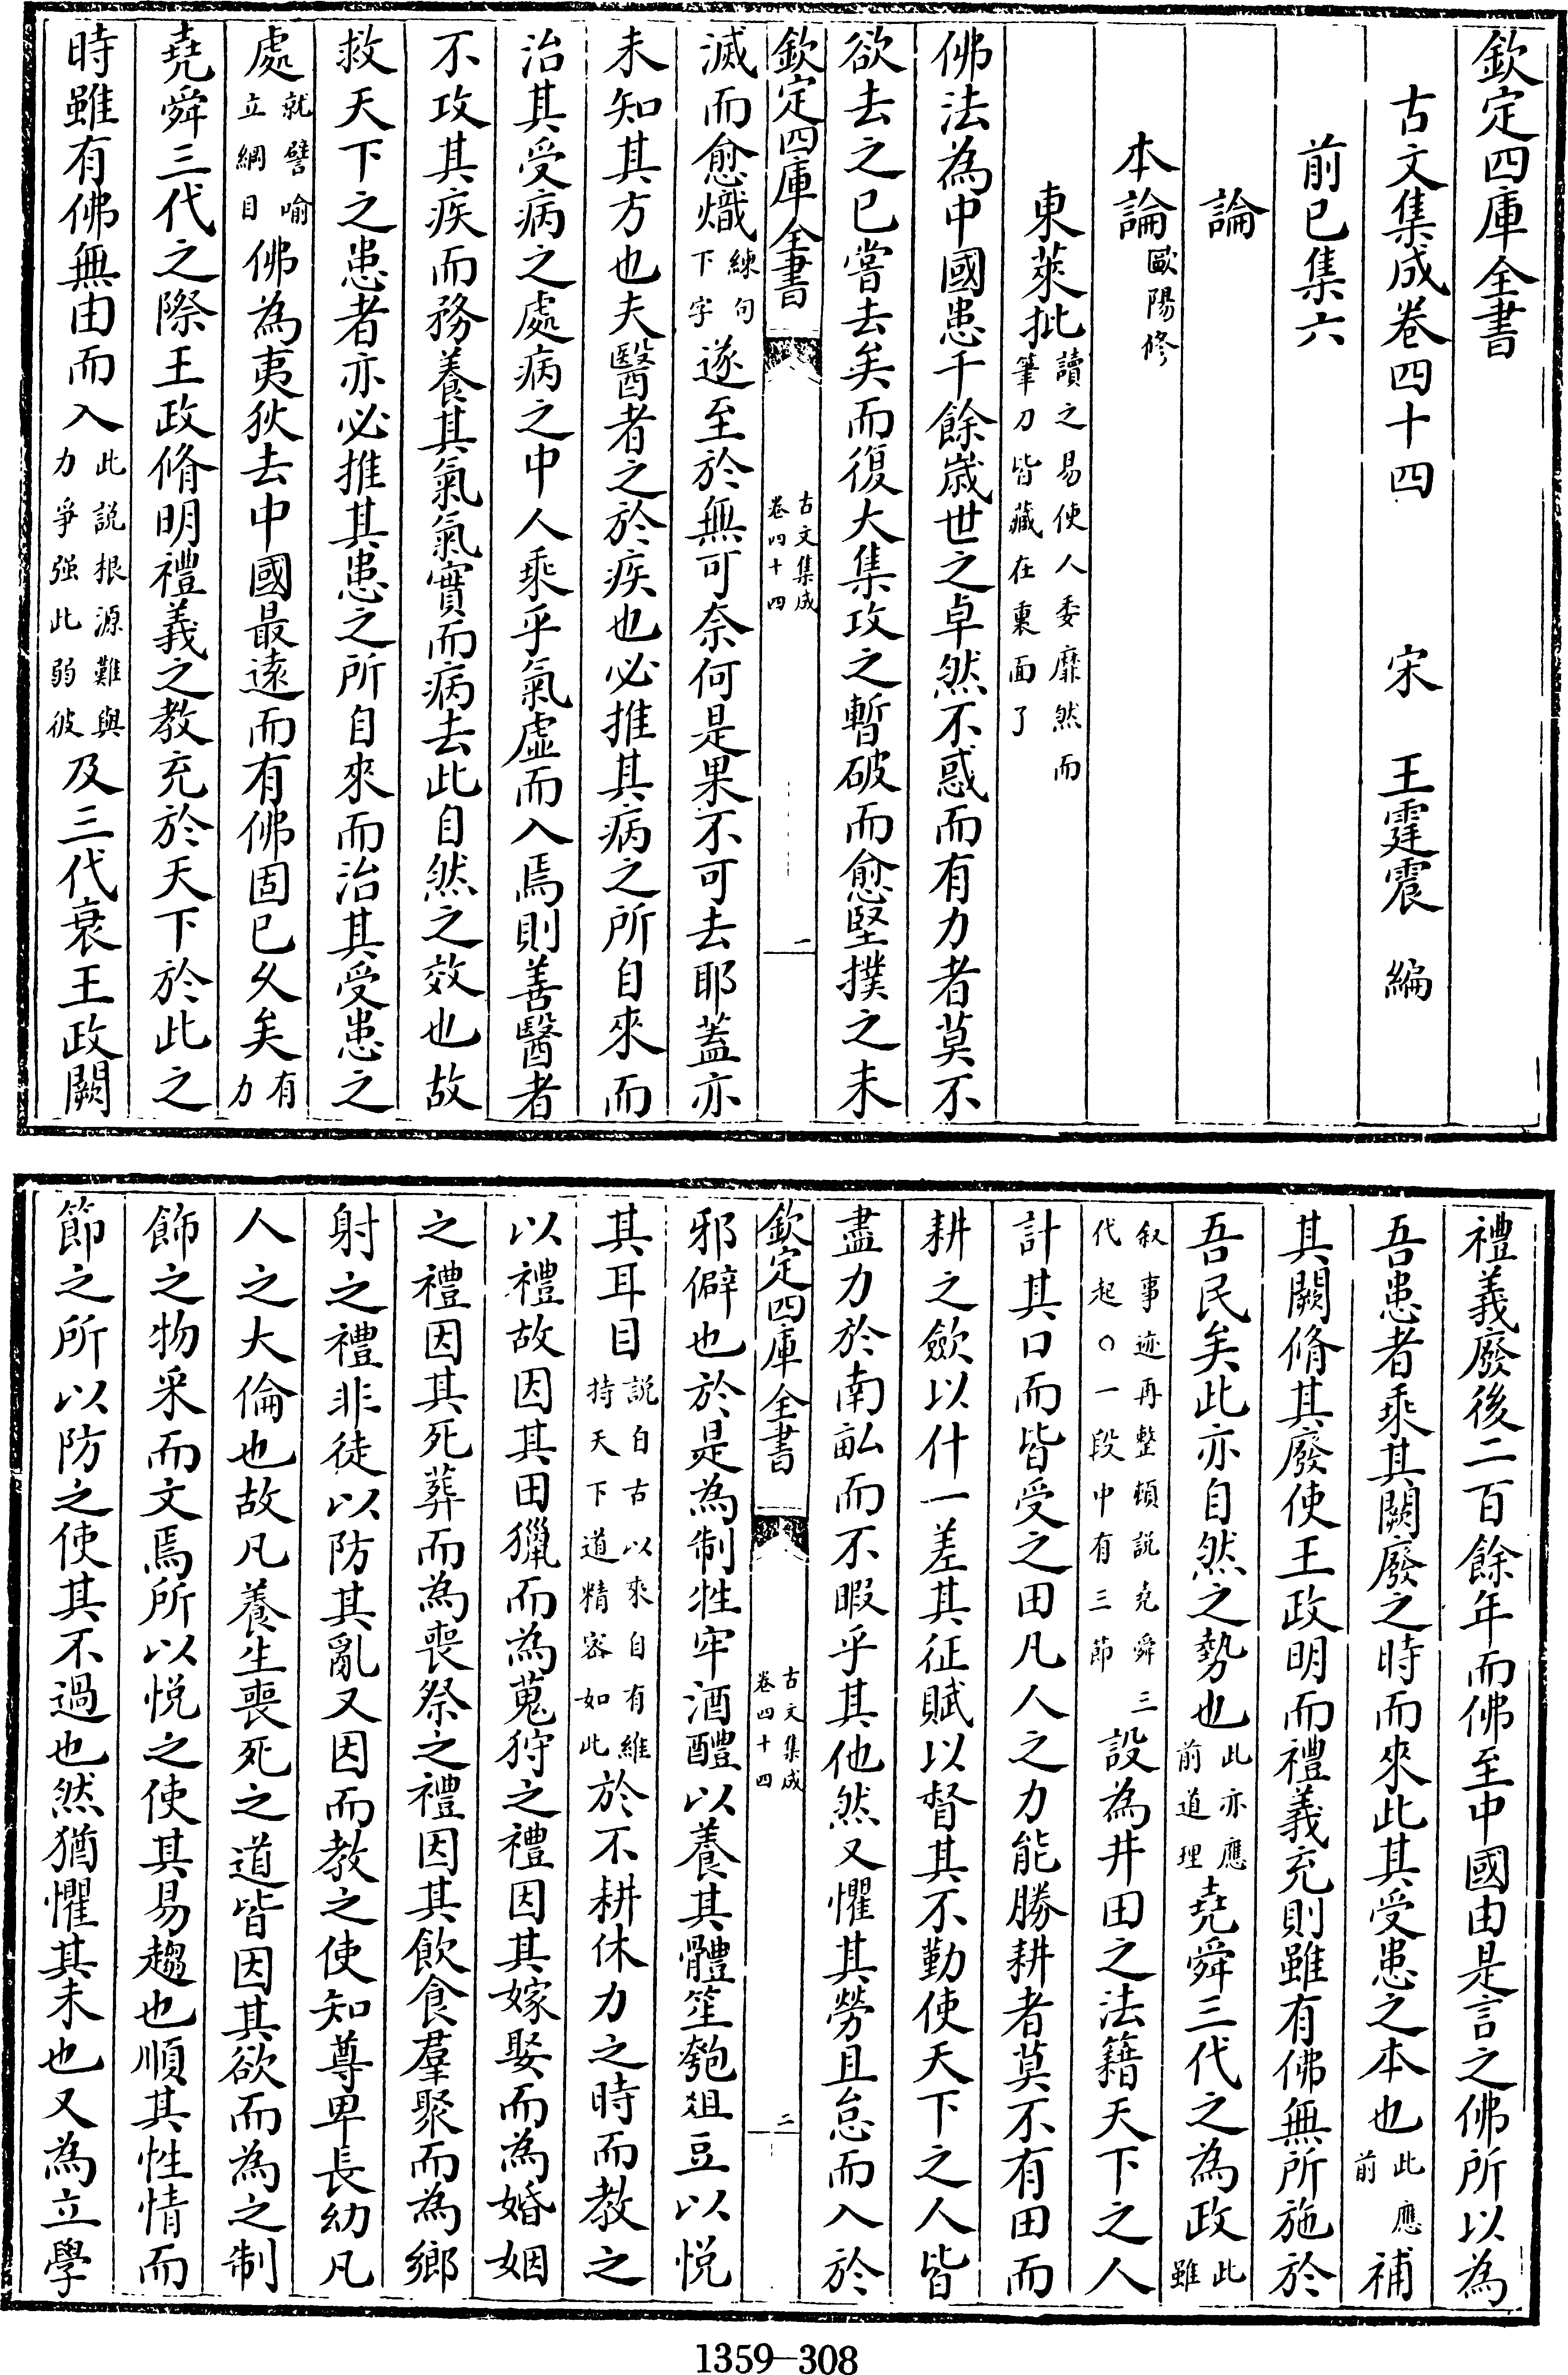 欽定四庫全書
古文集成卷四十四　宋　王霆震　編
前已集六
論
本論歐陽修
東萊批讀之易使人委靡然而筆刀皆藏在裏面了
佛法為中國患千餘嵗世之卓然不惑而有力者莫不
欲去之已嘗去矣而復大集攻之暫破而愈堅撲之未
欽定四庫全書　古文集成卷四十四　一
滅而愈熾練句下字遂至於無可奈何是果不可去耶蓋亦
未知其方也夫醫者之於疾也必推其病之所自來而
治其受病之處病之中人乘乎氣虛而入焉則善醫者
不攻其疾而務養其氣氣實而病去此自然之效也故
救天下之患者亦必推其患之所自來而治其受患之
處就譬喻立綱目佛為夷狄去中國最遠而有佛固已久矣有力
堯舜三代之際王政脩明禮義之教充於天下於此之
時雖有佛無由而入此説根源難與力爭强此弱彼及三代衰王政闕
禮義廢後二百餘年而佛至中國由是言之佛所以為
吾患者乘其闕廢之時而來此其受患之本也此應前補
其闕脩其廢使王政明而禮義充則雖有佛無所施於
吾民矣此亦自然之勢也此亦應前道理堯舜三代之為政此雖
叙事迹再整頓説堯舜三代起○一段中有三節設為井田之法籍天下之人
計其口而皆受之田凡人之力能勝耕者莫不有田而
耕之斂以什一差其征賦以督其不勤使天下之人皆
盡力於南畝而不暇乎其他然又懼其勞且怠而入於
欽定四庫全書　古文集成卷四十四　二
邪僻也於是為制牲牢酒醴以養其體笙匏俎豆以悅
其耳目説自古以來自有維持天下道精密如此於不耕休力之時而教之
以禮故因其田獵而為蒐狩之禮因其嫁娶而為婚姻
之禮因其死葬而為喪祭之禮因其飲食羣聚而為鄉
射之禮非徒以防其亂又因而教之使知尊卑長幼凡
人之大倫也故凡養生喪死之道皆因其欲而為之制
飾之物采而文焉所以悅之使其易趨也順其性情而
節之所以防之使其不過也然猶懼其未也又為立學
1359-308